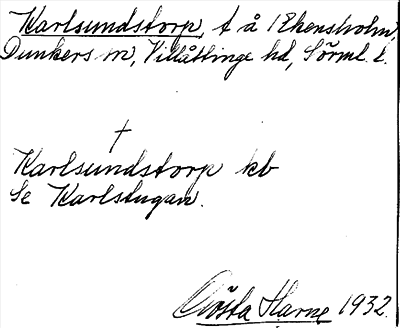 Karlsundstorp, t å /Ekensholm,
Dunkers sn, Villåttinge hd, Sörml. l.
†
Karlsundstorp kb
Se Karlstugan.
Gösta Harne 1932.